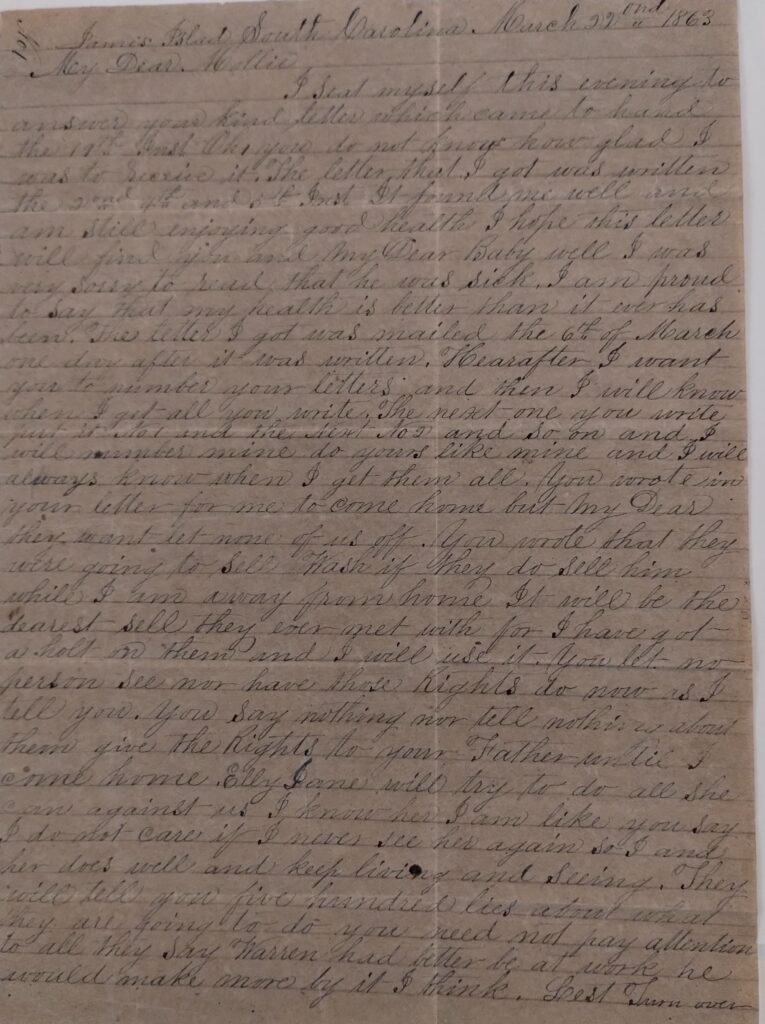 No1
James Island South Carolina. March 22ond 1863
My Dear Mollie
I seat myself this evening to
answer your kind letter which came to hand
the Inst Oh, you do not know how glad I
was to receive it. The letter that I got was written
the 2nd 4th and 5th Inst It found me well and
am still enjoying good health I hope this letter
will find you and My Dear Baby well I was
very sorry to read that he was sick. I am proud
to say that my health is better than it ever has
been. The letter I got was mailed the 6th of March
one day after it was written. Hearafter I want
you to number your letters and then I will know
when I get all you write. The next one you write
put it No1 and the next No2 and so on and I
will number mine do yours like mine and I will
always know when I get them all. You wrote in
your letter for me to come home but My Dear
they want let none of us off. You wrote that they
were going to sell Wash if they do sell him
while I am away from home It will be the
dearest sell they ever met with for I have got
a holt on them and I will use it. You let no
person see nor have those Rights do now as I
tell you. You say nothing nor tell nothing about
them give the Rights to your Father until I
come home Elly Jane will try to do all she
can against us I know her I am like you say
I do not care if I never see her again so I and
her does well and keep living and seeing. They
will tell you five hundred lies about what
they are going to do you need not pay attention
to all they say Warren had better be at work he
would make more by it I think. Turn over